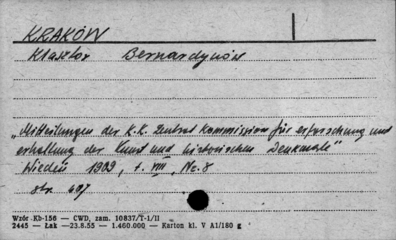 KRAKÓW
Klasztor Bernardynów
„Mitteilungen der K.K. Zentral Kommission für erforschung und
erhaltung der Kunst und historischen Denkmale"
Wiedeń 1909, t. VIII, Nr. 8
str. 407
Wzór Kb-156 — CWD, zam. 10837/T-1/II
2445 — Łak —23.8.55 — 1.460.000 — Karton kl. V A1/180 g